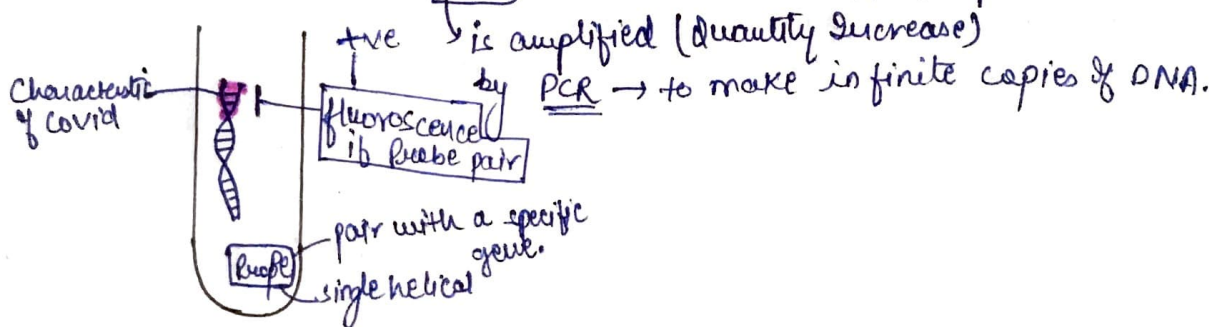 +ve is amplified (Quantity Increase)
by PCR → to make infinite copies of DNA.
Characteristic
of covid
fluoroscence
if Probe pair
pair with a specific
gene.
Probe
single helical